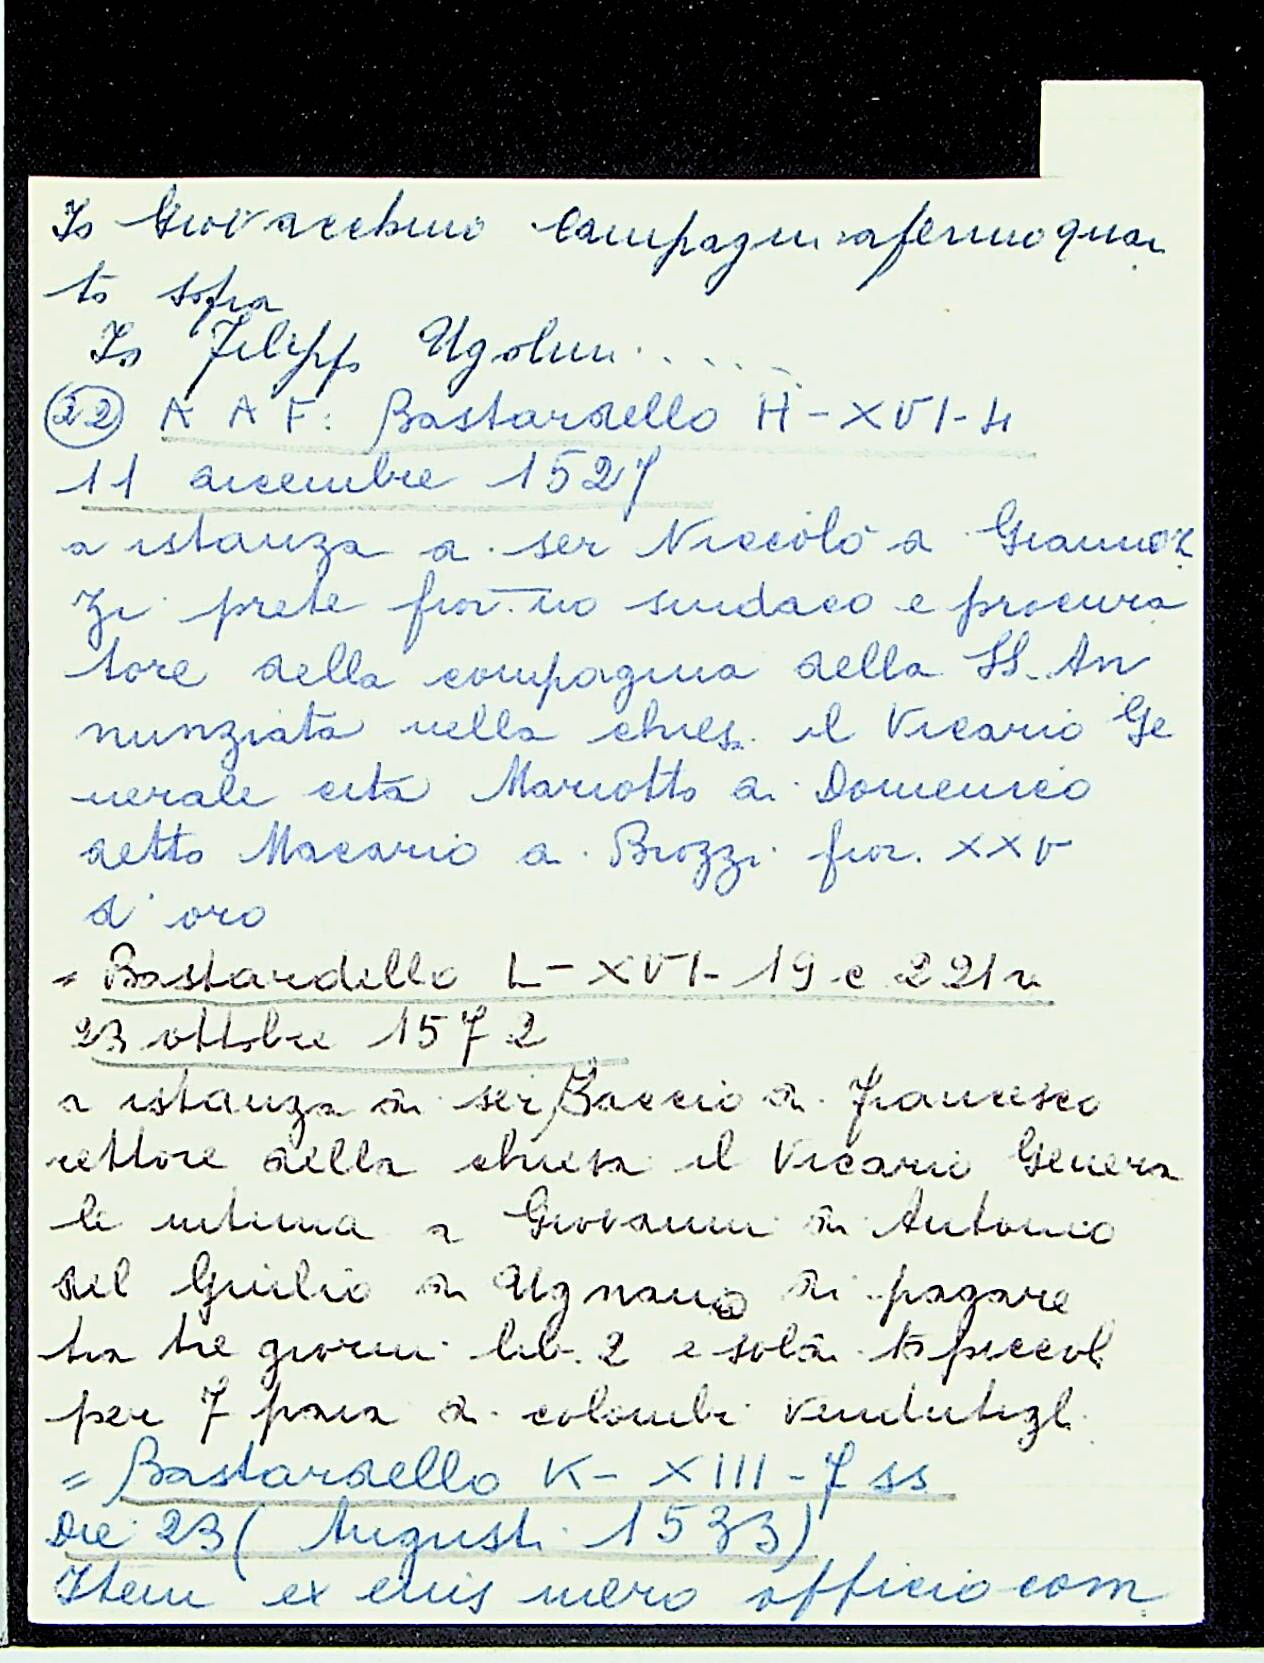 Io Giovacchino Campagni afermo qua
to sopra
Io Filippo Ugolini.....
22 A A F: Bastardello H-XVI-4
11 dicembre 1527
a istanza di ser Niccolò di Giannoz
zi prete fior.no sindaco e procura
tore della compagnia della SS. An
nunziata nella chies. il Vicario Ge
nerale cita Mariotto di Domenico
detto Macario a Brozzi fior. XXV
d'oro
= Bastardello L-XVI-19 c 221v
23 ottobre 1572
a istanza di ser Baccio di Francesco
rettore della chiesa il Vicario Genera
le intima a Giovanni di Antonio
del Giulio di Ugnano di pagare
tra tre giorni lib. 2 e soldi piccol
per 7 paia di colombi vendutigl
= Bastardello K-XIII-7 ss
Die 23 ( Augusti 1533)
Item ex eius mero officio com